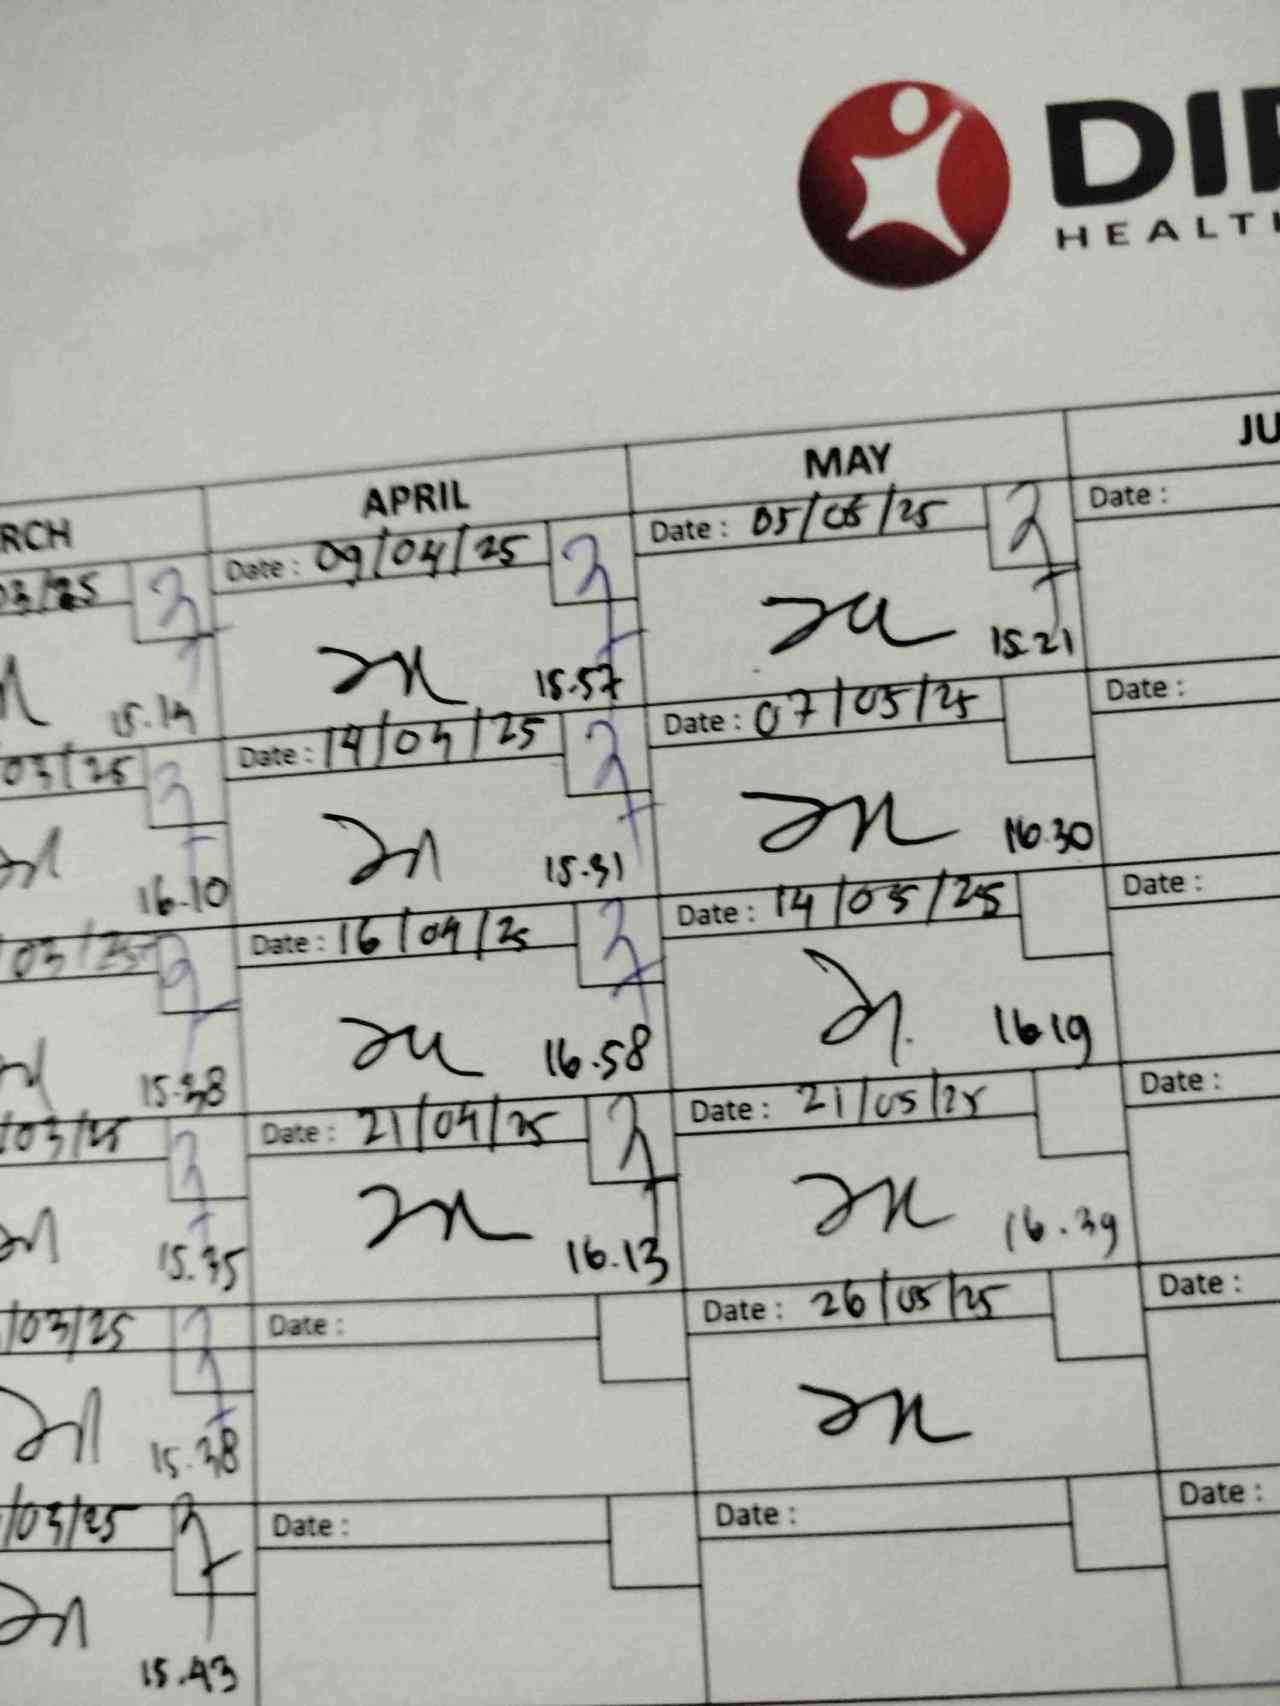 DI
HEALT
RCH APRIL MAY JU
03/25 Date : 09/04/25 Date : 05/05/25 Date :
15.14 15.57 15.21
03/25 Date : 14/04/25 Date : 07/05/25 Date :
16.10 15.31 16.30
03/25 Date : 16/04/25 Date : 14/05/25 Date :
15.38 16.58 16.19
/03/25 Date : 21/04/25 Date : 21/05/25 Date :
15.35 16.13 16.39
/03/25 Date : Date : 26/05/25 Date :
15.38
/03/25 Date : Date : Date :
15.43